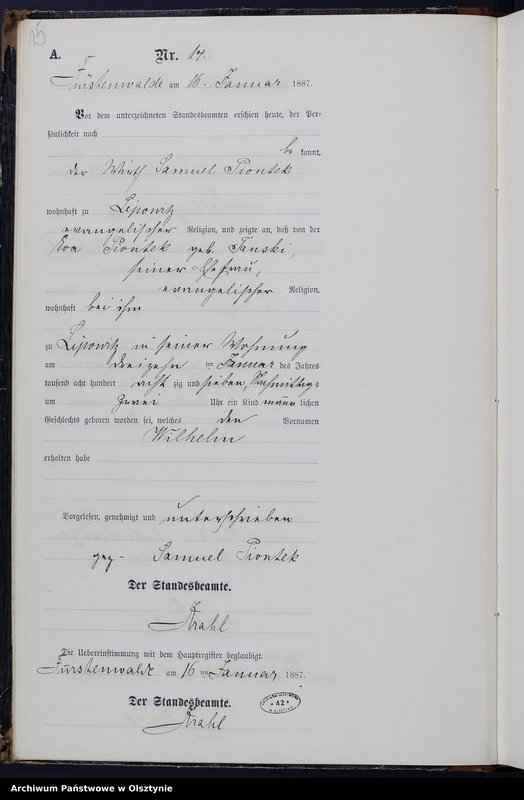 15
A.
Nr. 14.
Fürstenwalde am 16. Januar 1887.
Vor dem unterzeichneten Standesbeamten erschien heute, der Per-
sönlichkeit nach
be kannt,
der Wirth Samuel Piontek
wohnhaft zu Lipowitz
evangelischer Religion, und zeigte an, daß von der
Eva Piontek geb. Janski,
seiner Ehefrau,
evangelischer Religion,
wohnhaft bei ihm
zu Lipowitz in seiner Wohnung
am dreizehn ten Januar des Jahres
tausend acht hundert acht zig und sieben, Nachmittags
um zwei Uhr ein Kind männ lichen
Geschlechts geboren worden sei, welches den Vornamen
Wilhelm
erhalten habe
Vorgelesen, genehmigt und unterschrieben
gez. Samuel Piontek
Der Standesbeamte.
Krahl
Die Uebereinstimmung mit dem Hauptregister beglaubigt.
Fürstenwalde am 16 ten Januar 1887.
Der Standesbeamte.
Krahl
42
Archiwum Państwowe w Olsztynie